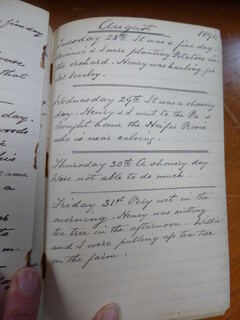 August 1894
Tuesday 28th It was a fine day.
& I were planting Potatoes in
the orchard. Henry was hauling for
Wednesday 29th It was a showery
day. Henry & I went to the Pa &
bought home the Heifer Rose
who is near calving.
Thursday 30th A showery day
Were not able to do much.
Friday 31st Very wet in the
morning. Henry was cutting
tea tree in the afternoon. Willie
and I were pulling up tea tree
on the farm.